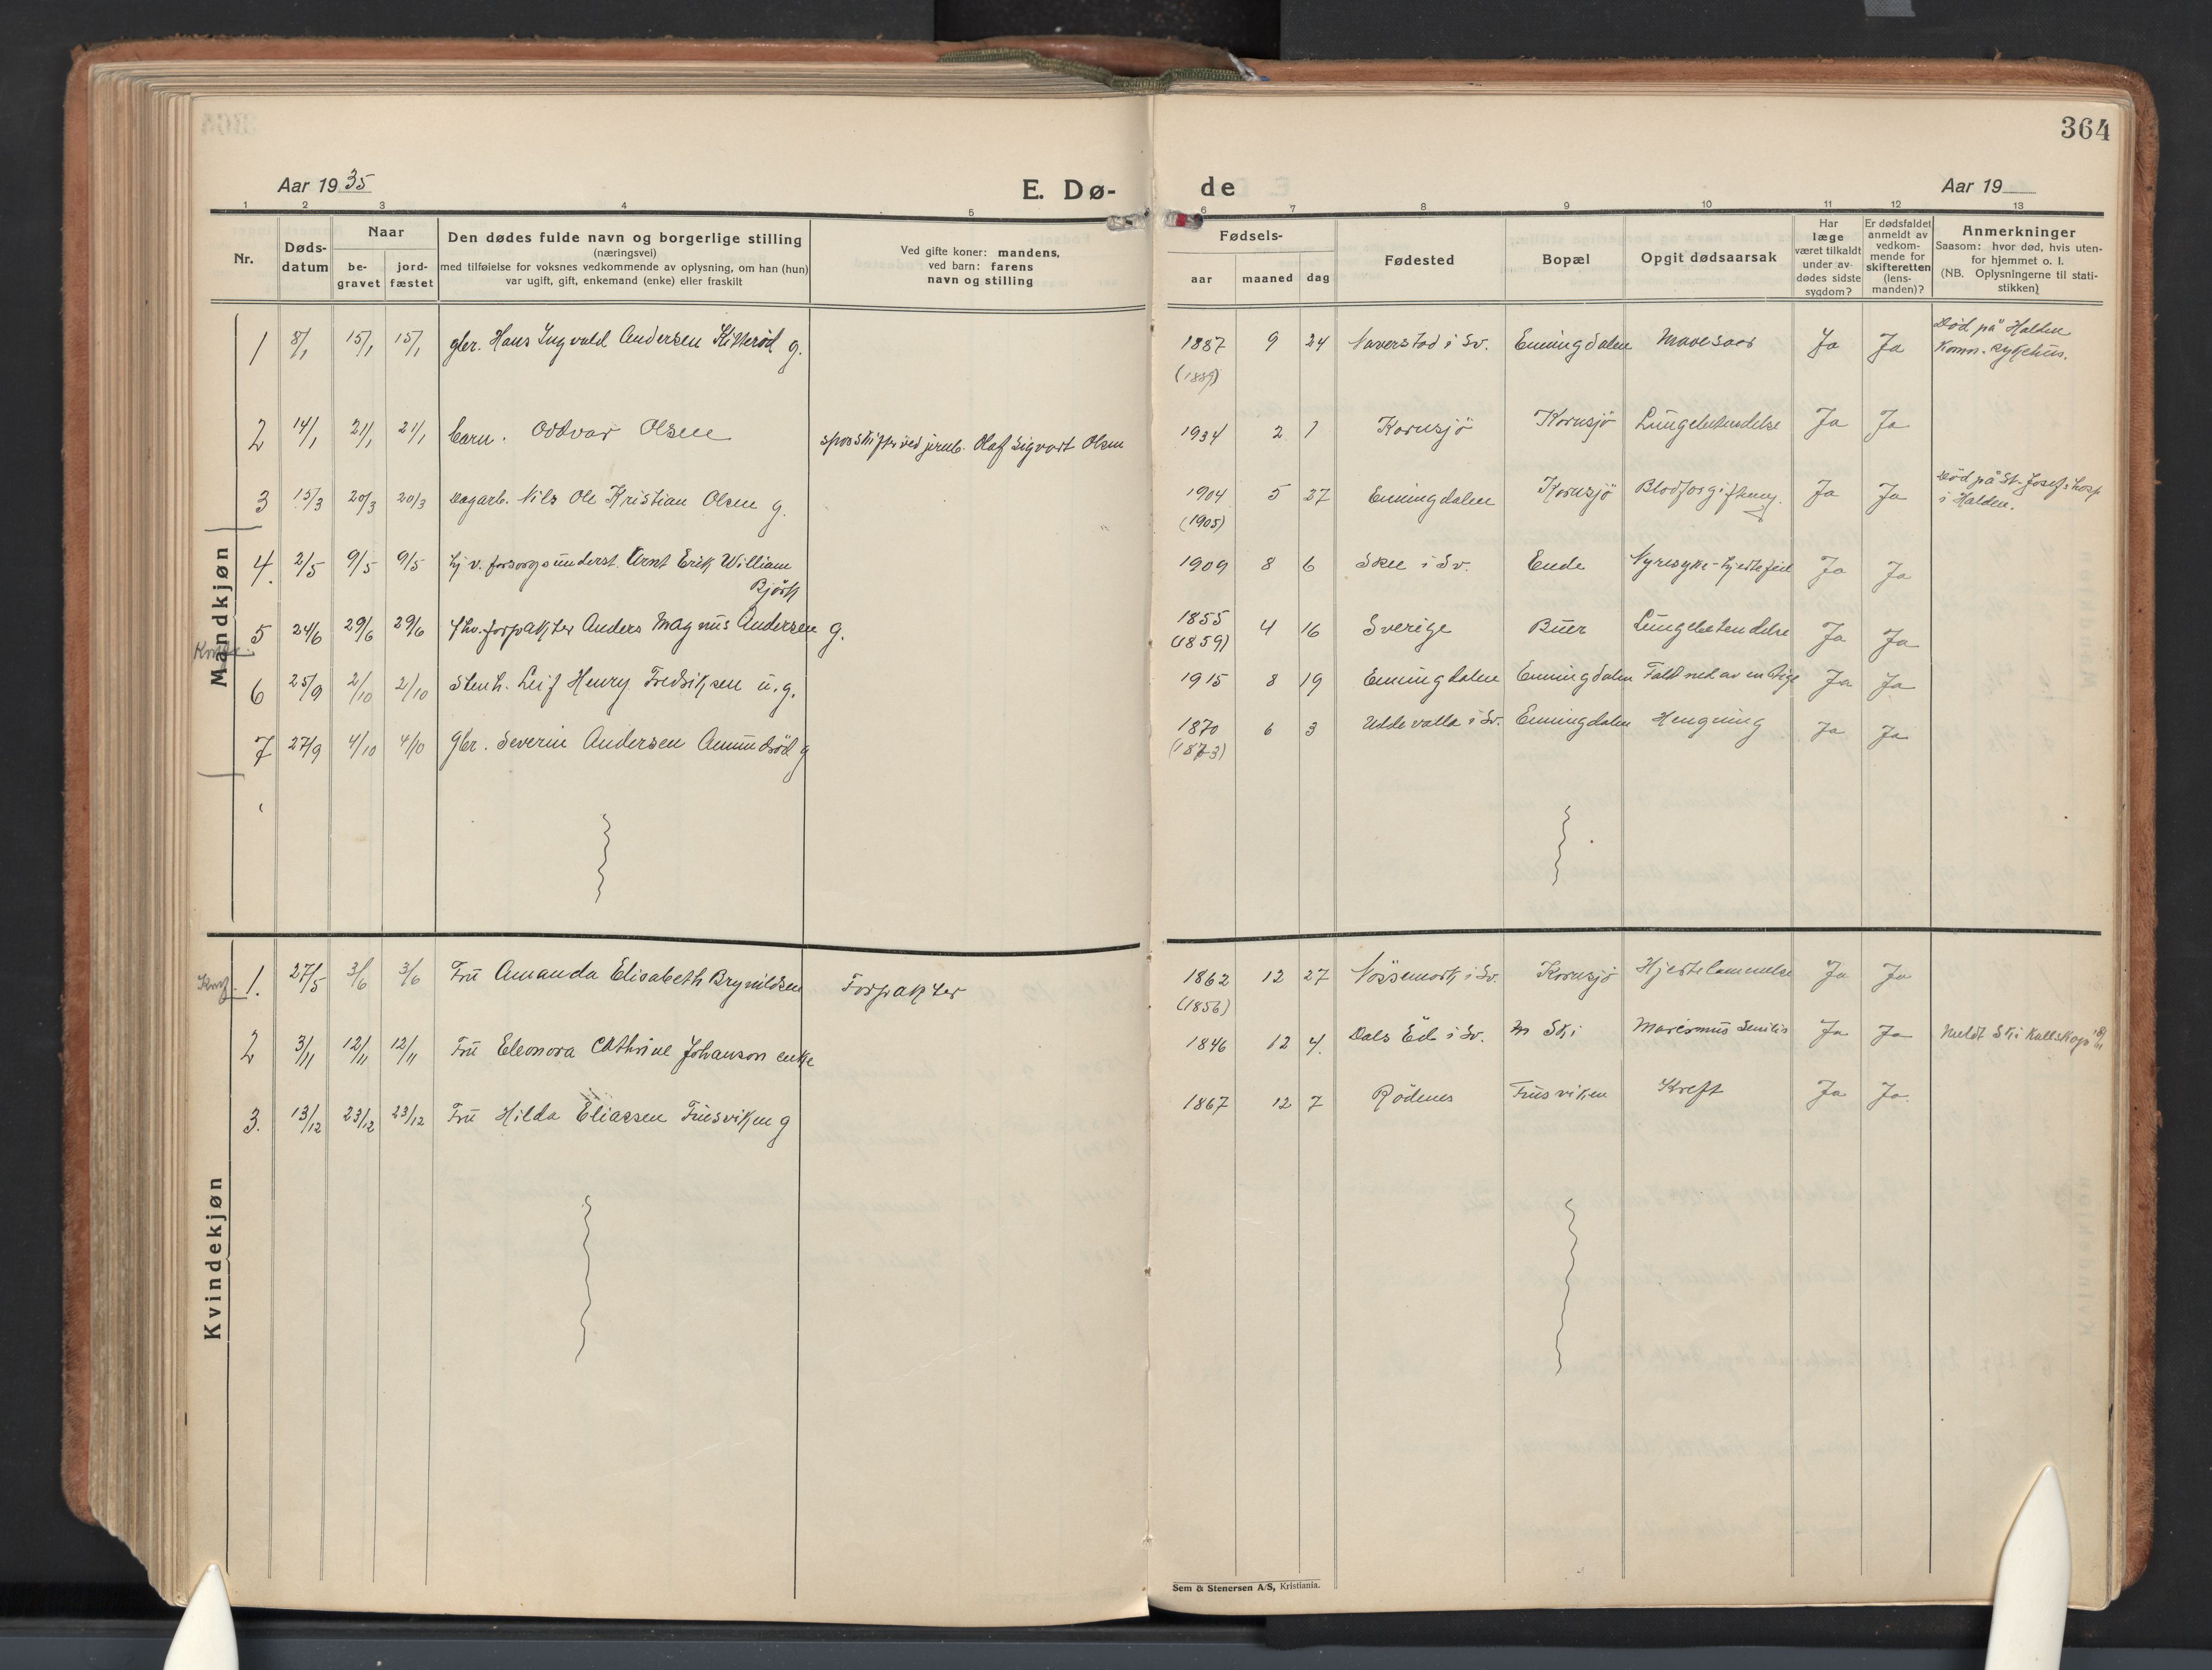 364
Aar 1935
E. Dø-
de
Aar 19
1 2 3 4 5 6 7 8 9 10 11 12 13
Nr.
Døds-
datum
Naar
be-
gravet
jord-
fæstet
Den dødes fulde navn og borgerlige stilling
(næringsvei)
med tilføielse for voksnes vedkommende av oplysning, om han (hun)
var ugift, gift, enkemand (enke) eller fraskilt
Ved gifte koner: mandens,
ved barn: farens
navn og stilling
Fødsels-
aar maaned dag
Fødested
Bopæl
Opgit dødsaarsak
Har
læge
været tilkaldt
under av-
dødes sidste
sygdom?
Er dødsfaldet
anmeldt av
vedkom-
mende for
skifteretten
(lens-
manden)?
Anmerkninger
Saasom: hvor død, hvis uten-
for hjemmet o. l.
(NB. Oplysningerne til stati-
stikken)
Mandkjøn
1 8/1 15/1 15/1 gbr. Hans Ingvald Andersen Kitterød g. 1887 9 24 Naverstad i Sv. Enningdalen Mavesaar Ja Ja Død på Halden
(1889) Komm. sykehus.
2 14/1 21/1 21/1 barn. Oddvar Olsen sporskifter ved jernb. Olaf Sigvart Olsen 1934 2 1 Kornsjö Kornsjö Lungebetendelse Ja Ja
3 15/3 20/3 20/3 Dagarb. Nils Ole Kristian Olsen g. 1904 5 27 Enningdalen Kornsjö Blodforgiftning Ja Ja Död på St. Josefs hosp
(1905) i Halden.
4. 2/5 9/5 9/5 hj. v. forsorgsunderst. Arnt Erik William 1909 8 6 Skee i Sv. Ende Nyresyke-hjertefeil Ja Ja
Björk
5 24/6 29/6 29/6 fhv. forpakter Anders Magnus Andersen g. 1855 4 16 Sverige Buer Lungebetendelse Ja Ja
(1859)
6 25/9 2/10 2/10 Stenh. Leif Henry Fredriksen u.g. 1915 8 19 Enningdalen Enningdalen Falt ned av en stige Ja Ja
7 27/9 4/10 4/10 gbr. Severin Andersen Amundröd g 1870 6 3 Uddevalla i Sv. Enningdalen Hengning Ja Ja
(1873)
Kvindekjøn
1. 27/5 3/6 3/6 Fru Amanda Elisabeth Brynildsen Forpakter 1862 12 27 Nössemark i Sv. Kornsjö Hjertelammelse Ja Ja
(1856)
2 3/11 12/11 12/11 Fru Eleonora Cathrine Johanson enke 1846 12 4. Dals Ed i Sv. Ski Marasmus senilis Ja Ja Meldt Ski
3. 13/12 23/12 23/12 Fru Hilda Eliassen Fuusviken g 1867 12 7 Rödenes Fuusviken Kreft Ja Ja.
Sem & Stenersen A/S, Kristiania.